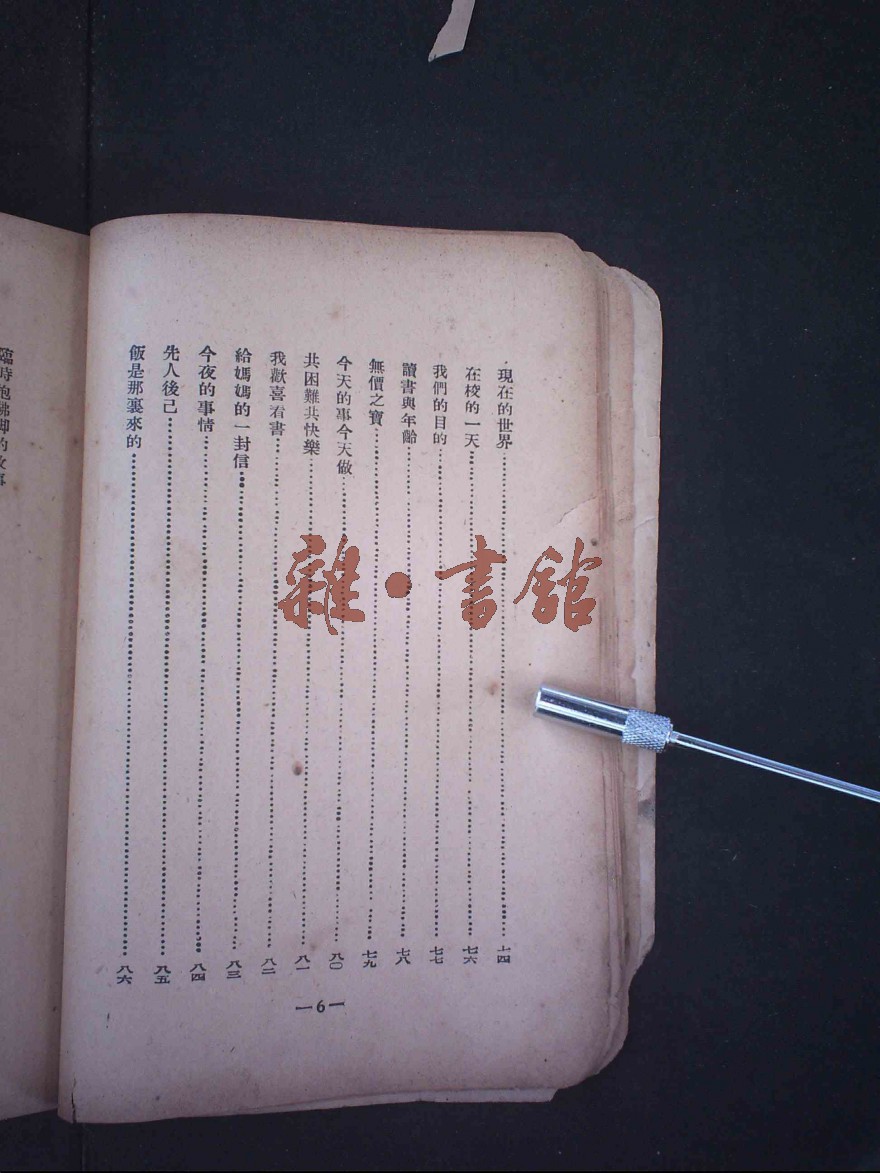 現在的世界⋯⋯七四
在校的一天⋯⋯七六
我們的目的⋯⋯七七
讀書與年齡⋯⋯七八
無價之寶⋯⋯七九
今天的事今天做⋯⋯八〇
共困難共快樂⋯⋯八一
我歡喜看書⋯⋯八二
給媽媽的一封信⋯⋯八三
今夜的事情⋯⋯八四
先人後己⋯⋯八五
飯是那裏來的⋯⋯八六
—6—
臨時抱佛脚的故事
雜·書館